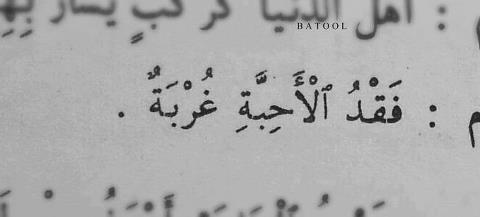 : أهل الدنيا كركبٍ يسار بهم
BATOOL
م : فَقْدُ ٱلْأَحِبَّةِ غُرْبَةٌ .